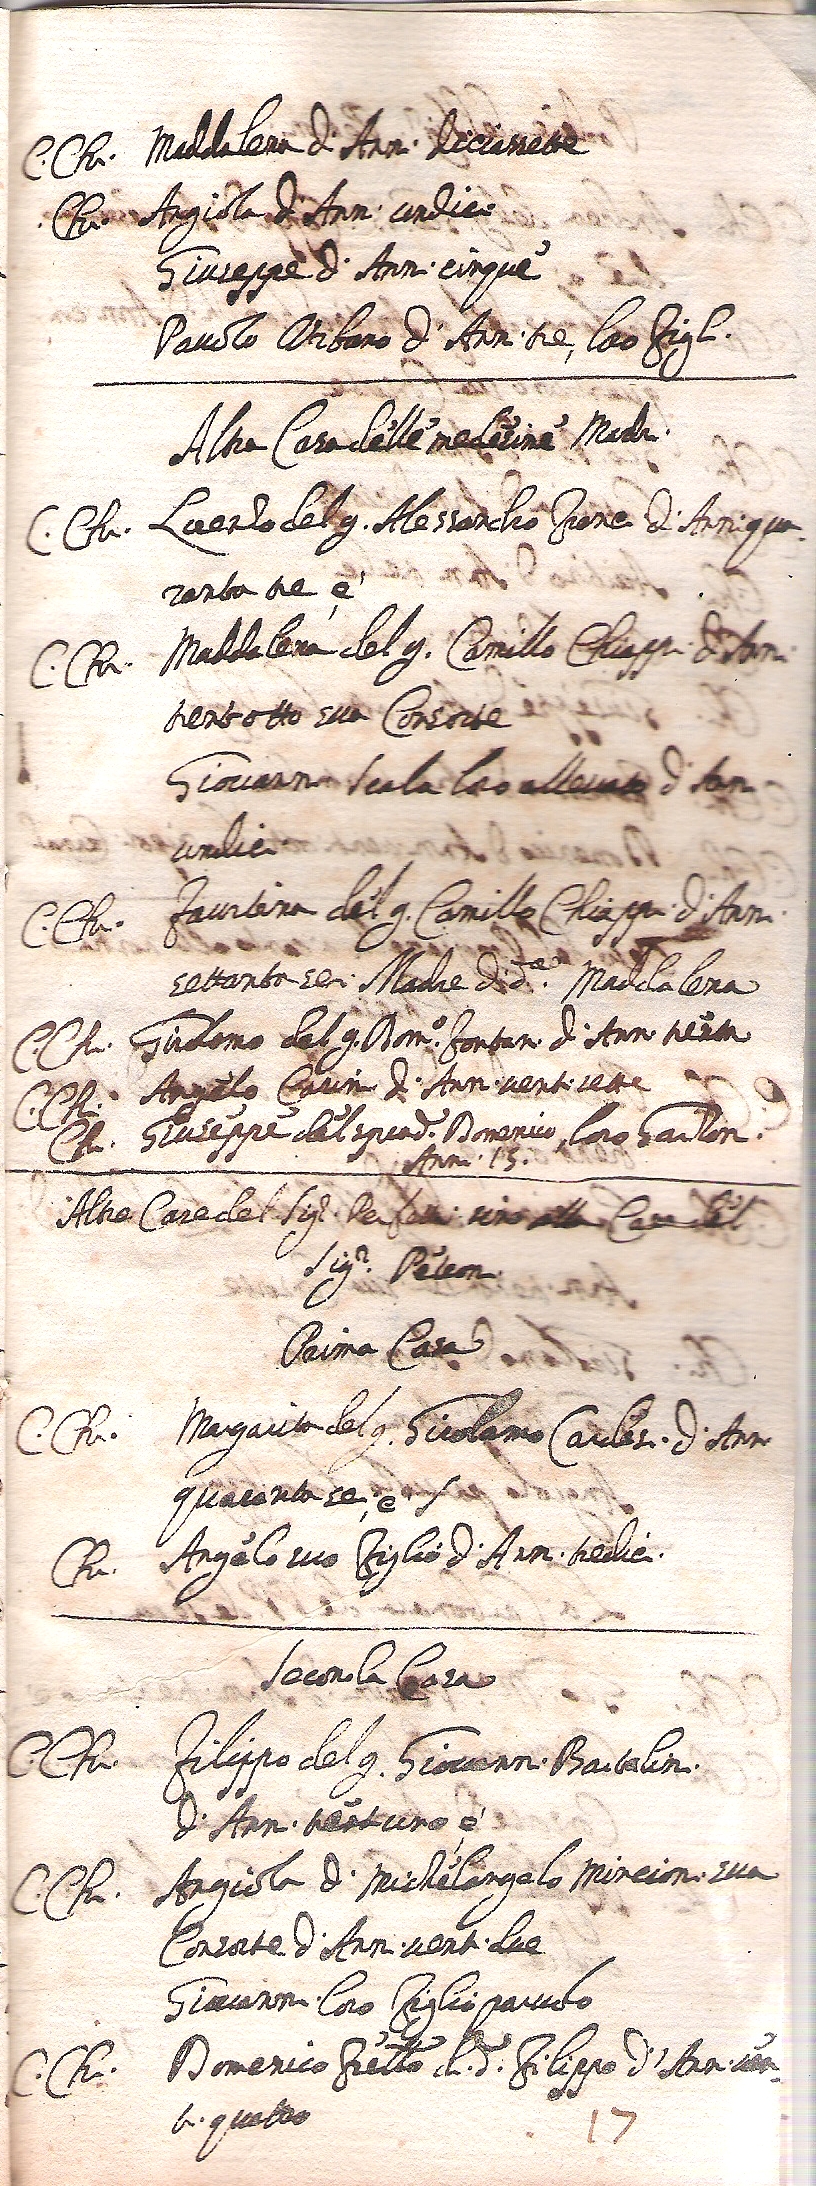 C. Ch. Maddalena d' Ann. diciassette
Ch. Angiola d' Ann. undici
Giuseppe d' Ann. cinque
Pauolo Urbano d' Ann. tre, loro Figl.
Altra Casa delle medesime Madri
C. Ch. del q. Alessandro Fiore d' Ann. qua-
ranta tre, e
C. Ch. Maddalena del q. Camillo Chiappi d' Ann.
trent otto sua Consorte
Giovanni Scala loro allevato d' Ann.
undici
C. Ch. Faustina del q. Camillo Chiappi d' Ann.
settanta sei Madre di d.a Maddalena
C. Ch. Girolamo del q. Dom.o Fontan. d' Ann. trenta
C. Ch. Angelo d' Ann. vent sette
Ch. Giuseppe del Domenico, loro Garzon.
Ann. 15.
Altre Case del Sig.r sino alla Casa del
Sig.r
Prima Casa
C. Ch. Margarita del q. Girolamo d' Ann.
quaranta sei, e
Ch. Angelo suo Figlio d' Ann. tredici.
Seconda Casa
C. Ch. Filippo del q. Giovann. Bartolin.
d' Ann. trent uno, e
C. Ch. Angiola di Michelangelo Mincion. sua
Consorte d' Ann. vent. due
Giovann. loro Figlio parvulo
C. Ch. Domenico Frello di d.o Filippo d' Ann. ven-
ti quattro
17